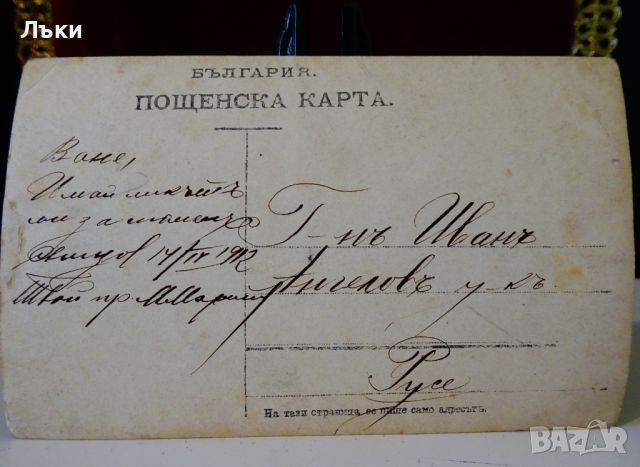 Лъки
БЪЛГАРИЯ.
ПОЩЕНСКА КАРТА.
Ване,
Имай ликътъ
ми за споменъ
14/IV 1912
Твой пр.
Г-нъ Иванъ
Ангеловъ у-къ
Русе
На тази страница се пише само адресътъ.
BAZAR